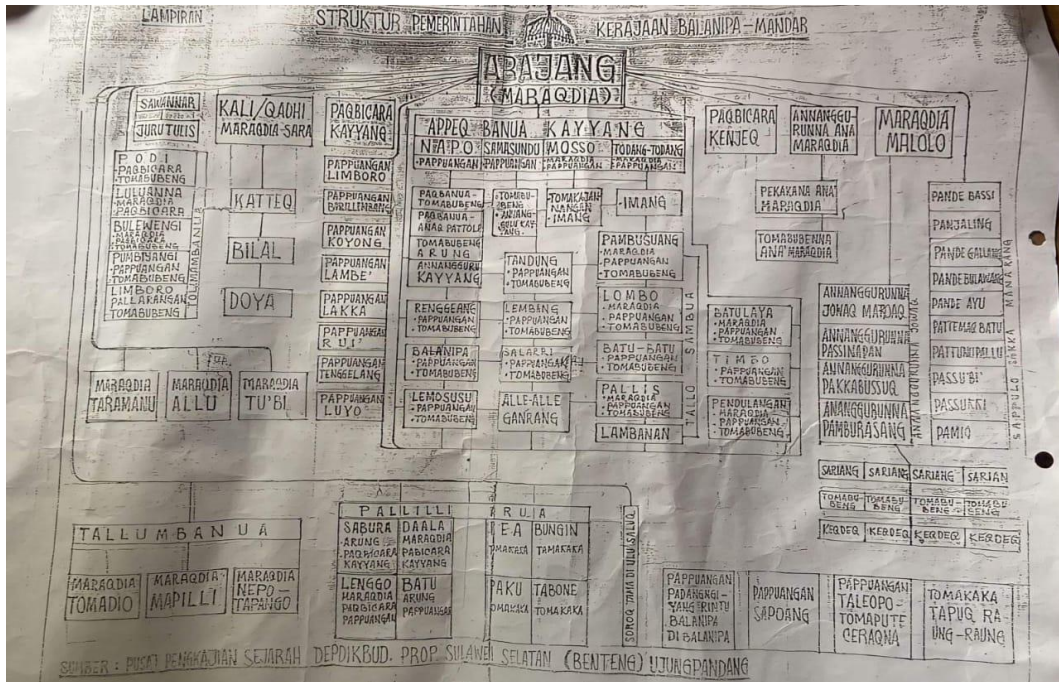 LAMPIRAN
STRUKTUR PEMERINTAHAN KERAJAAN BALANIPA-MANDAR
ARAJANG
(MARAQDIA)
SAWANNAR
JURU TULIS
KALI/QADHI
MARAQDIA-SARA
KATTEQ
BILAL
DOYA
PAQBICARA
KAYYANG
PAPPUANGAN
LIMBORO
PAPPUANGAN
BIRILLEMBANG
PAPPUANGAN
KOYONG
PAPPUANGAN
LAMBE'
PAPPUANGAN
LAKKA
PAPPUANGAN
RUI'
PAPPUANGAN
TENGGELANG
PAPPUANGAN
LUYO
PODI
• PAQBICARA
TOMABUBENG
LULUANNA
• MARAQDIA
PAQBICARA
BULEWENGI
• MARAQDIA
• PAQBICARA
TOMABUBENG
PUMBIYANGI
• PAPPUANGAN
• TOMABUBENG
LIMBORO
PALLARANGAN
TOMABUBENG
MARAQDIA
TARAMANU
MARAQDIA
ALLU
MARAQDIA
TU'BI
APPEQ BANUA KAYYANG
NAPO
• PAPPUANGAN
SAMASUNDU
PAPPUANGAN
MOSSO
MARAQDIA
PAPPUANGAN
TODANG-TODANG
MARAQDIA
PAPPUANGAN
PAQBANUA-
TOMABUBENG
PAQBANUA-
ANAQ PATTOLA
TOMABUBENG
ARUNG
ANNANGGURU
KAYYANG
RENGGEANG
• PAPPUANGAN
• TOMABUBENG
BALANIPA
• PAPPUANGAN
• TOMABUBENG
LEMOSUSU
• PAPPUANGAN
• TOMABUBENG
TOMABU-
BENG
TANDUNG
• PAPPUANGAN
• TOMABUBENG
LEMBANG
• PAPPUANGAN
• TOMABUBENG
SALARRI
• PAPPUANGAN
• TOMABUBENG
ALLE-ALLE
GANRANG
TOMAKAJAN
NANGAN
IMANG
-IMANG
PAMBUSUANG
• MARAQDIA
• PAPPUANGAN
• TOMABUBENG
LOMBO
MARAQDIA
• PAPPUANGAN
• TOMABUBENG
BATU-BATU
• PAPPUANGAN
• TOMABUBENG
PALLIS
MARAQDIA
PAPPUANGAN
• TOMABUBENG
LAMBANAN
TALLO SAMBIA
BATULAYA
• MARAQDIA
• PAPPUANGAN
• TOMABUBENG
TIMBO
• PAPPUANGAN
• TOMABUBENG
PENDULANGAN
• MARAQDIA
• PAPPUANGAN
• TOMABUBENG
PAQBICARA
KENJEQ
ANNANGGU
RUNNA ANA
MARAQDIA
PEKAKANA ANA'
MARAQDIA
TOMABUBENNA
ANA' MARAQDIA
MARAQDIA
MALOLO
ANNANGGURUNNA
JONAQ MAPDAQ
ANNANGGURUNNA
PASSINAPAN
ANNANGGURUNNA
PAKKABUSSUQ
ANANGGURUNNA
PAMBURASANG
ANNANGGURUNNA JOWAQ
PANDE BASSI
PANJALING
PANDE GALLANG
PANDE BULAWANG
PANDE AYU
PATTEMAQ BATU
PATTUNU PALLU
PASSU'BI'
PASSUKKI
PAMIQ
SAPPULO SOKKA MANARANG
SARIANG SARIANG SARIANG SARIAN
TOMABU-BENG TOMABU-BENG TOMABU-BENG TOMABU-BENG
KEQDEQ KEQDEQ KEQDEQ KEQDEQ
TALLUMBANUA
MARAQDIA
TOMADIO
MARAQDIA
MAPILLI
MARAQDIA
NEPO-
TAPANGO
SABURA
ARUNG
PAQBICARA
KAYYANG
DAALA
MARAQDIA
PABICARA
KAYYANG
LENGGO
MARAQDIA
PAQBICARA
PAPPUANGAN
BATU
ARUNG
PAPPUANGAN
BUNGIN
TAMAKAKA
PAKU
TOMAKAKA
TABONE
TOMAKAKA
SOROQ TANA DI ULU SALUQ
PAPPUANGAN
PADANGNGI-
YANG RINTU
BALANIPA
DI BALANIPA
PAPPUANGAN
SAPOANG
PAPPUANGAN
TALEOPO-
TOMAPUTE
CERAQNA
TOMAKAKA
TAPUQ RA-
UNG-RAUNG
SUMBER : PUSAT PENGKAJIAN SEJARAH DEPDIKBUD. PROP. SULAWESI SELATAN (BENTENG) UJUNGPANDANG